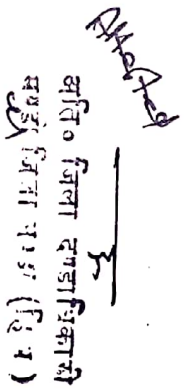 Attested
अति० जिला दण्डाधिकारी
मण्डी जिला मण्डी (हि प्र)